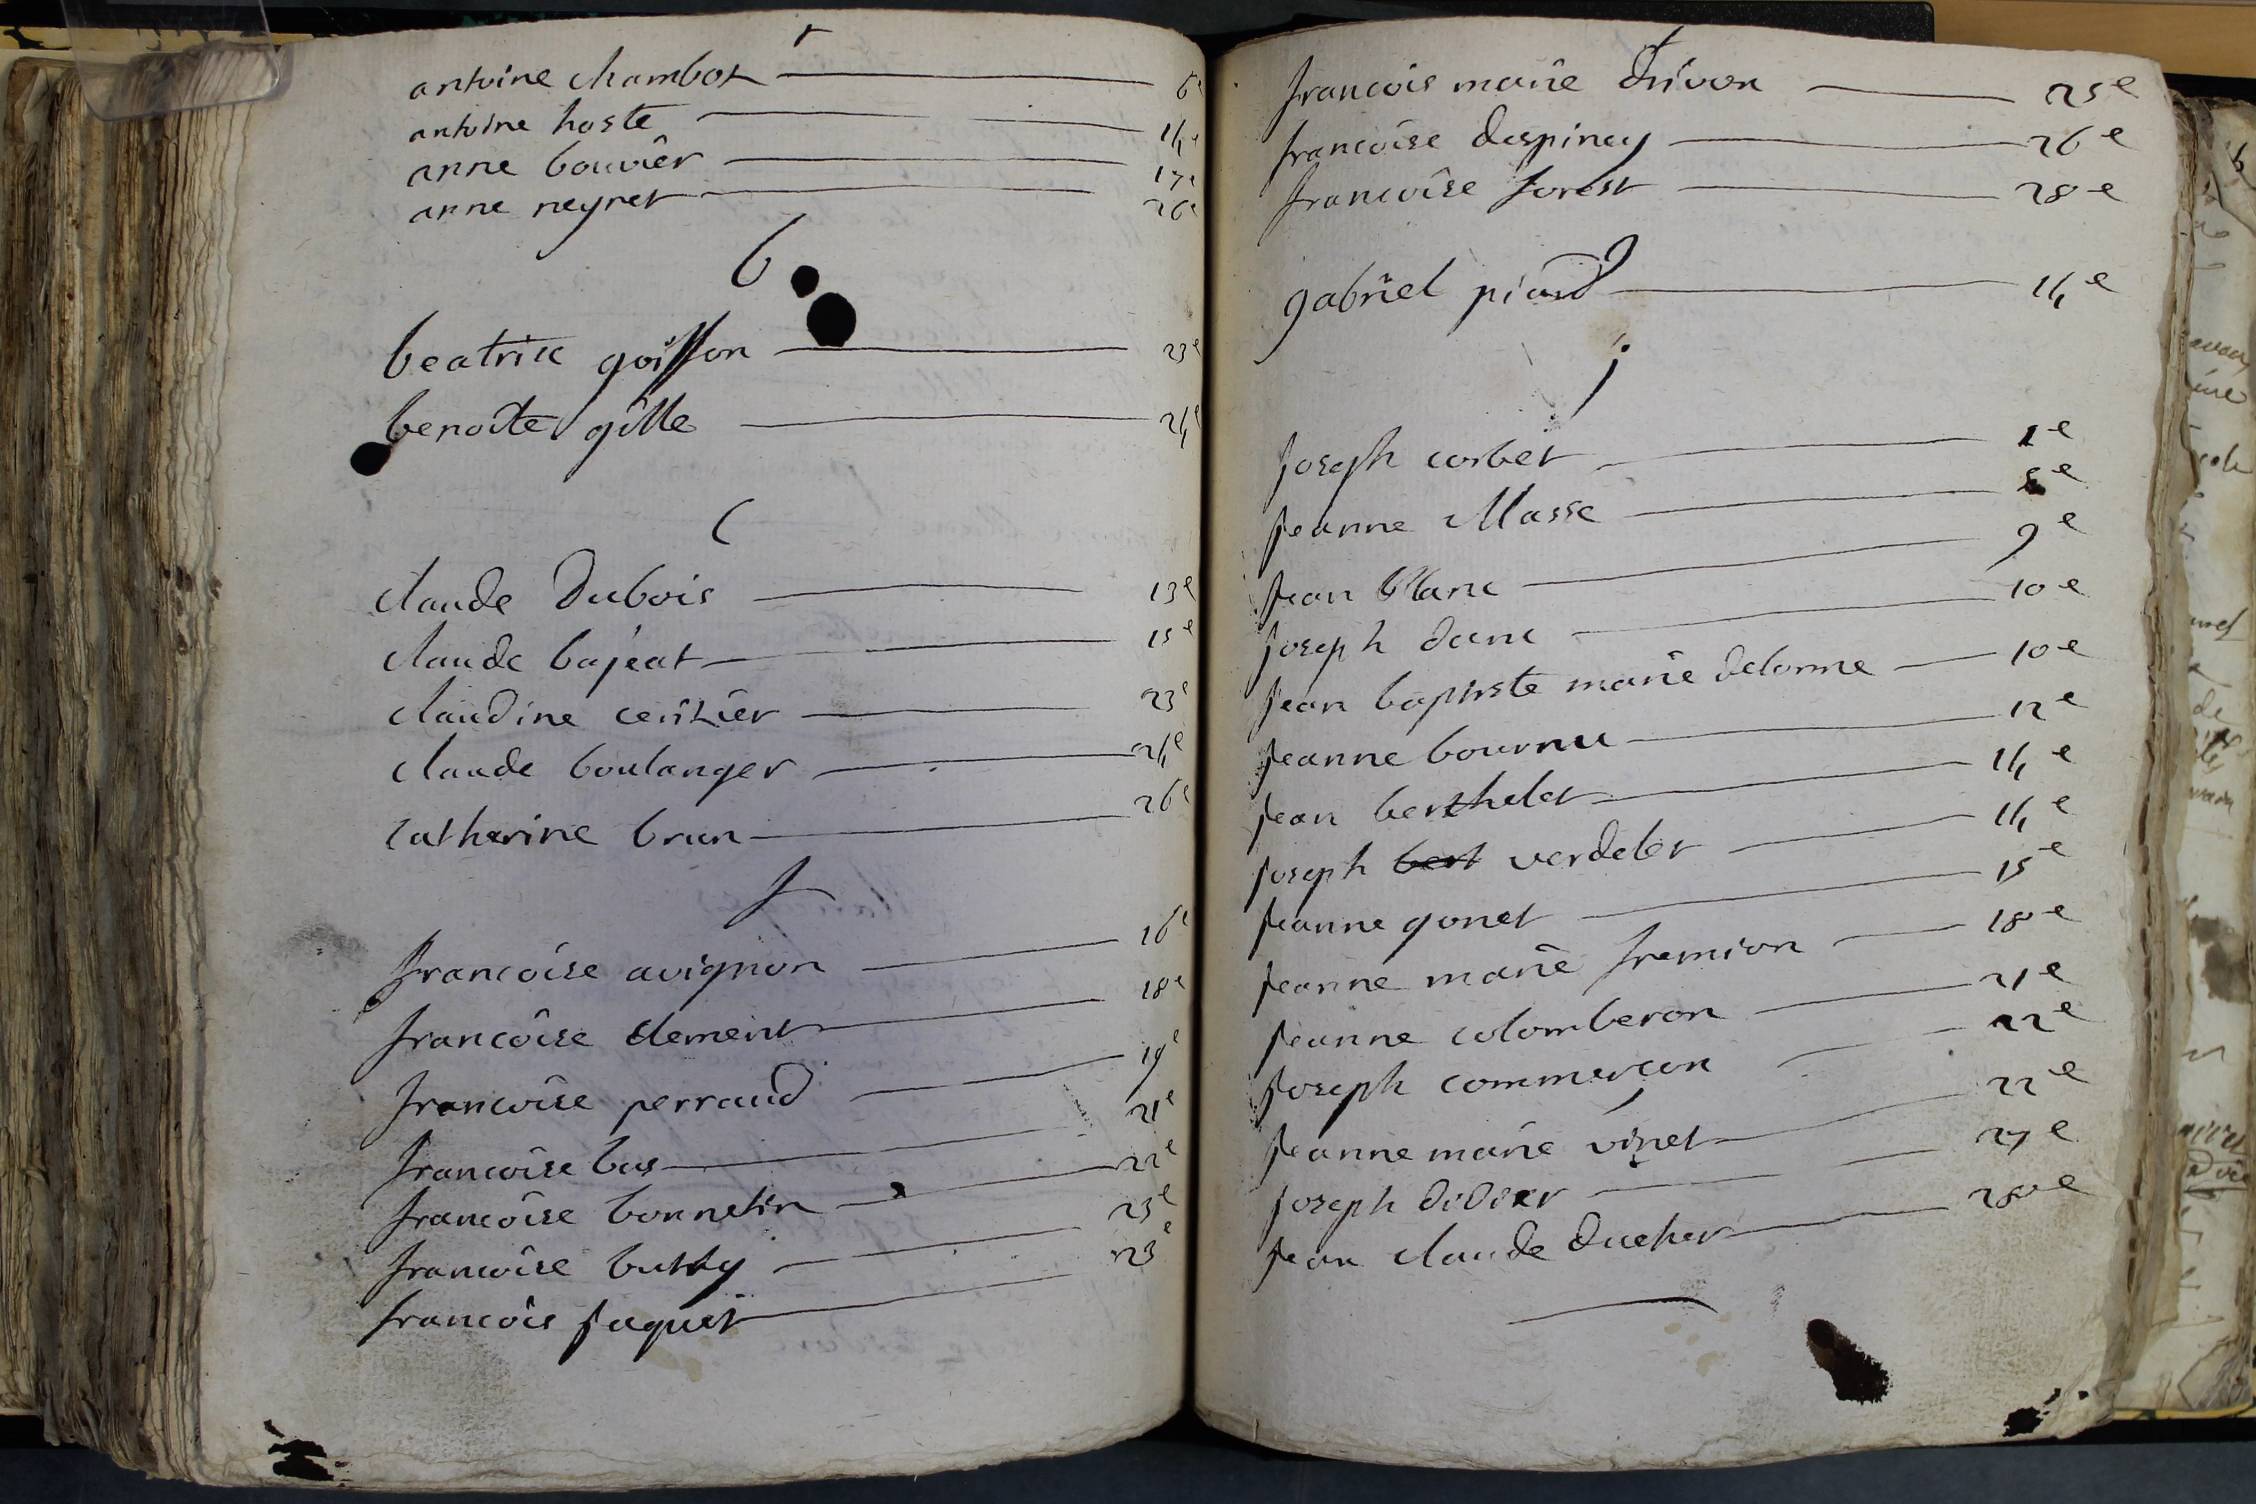 antoine chambot 6e
antoine hoste 14e
anne bouvier 17e
anne neyret 26e
b
beatrix goiffon 23e
benoite gille 24e
c
claude Dubois 13e
claude bajeat 15e
claudine 23e
claude boulanger 24e
catherine brun 26e
f
francoise avignon 16e
francoise clement 18e
francoise perraud 19e
francoise bas 21e
francoise bonnetin 22e
francoise butty 23e
francois faquet 23e
f
francois marie drivon 25e
francoise despiney 26e
francoise forest 28e
g
gabriel piard 14e
j
joseph corbet 1e
jeanne Masse 8e
jean blanc 9e
joseph danc 10e
jean baptiste marie delorme 10e
jeanne bournu 12e
jean berthelet 14e
joseph bert verdelet 14e
jeanne gonet 15e
jeanne marie fremion 18e
jeanne colomberon 21e
joseph commerçon 22e
jeanne marie vinet 22e
joseph didier 27e
jean claude ducher 28e